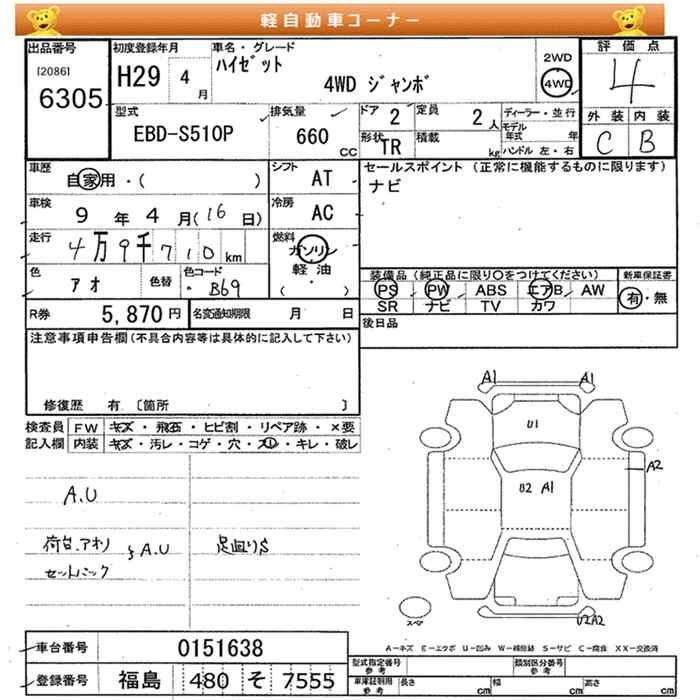 軽自動車コーナー
出品番号
[2086]
6305
初度登録年月
H29 4月
車名・グレード
ハイゼット
4WD ジャンボ
2WD
4WD
評価点
4
外装 内装
C B
型式
EBD-S510P
排気量
660 CC
ドア 2
形状 TR
定員 2人
積載 kg
ディーラー・並行
モデル年式 年
ハンドル 左・右
車歴
自家用・( )
シフト AT
車検
9年4月(16日)
冷房 AC
走行
4万9千710km
燃料
ガソリン
軽油
( )
色 アオ
色替
色コード
B69
R券 5,870円
名変通知期限 月 日
セールスポイント (正常に機能するものに限ります)
ナビ
装備品 (純正品に限り○をつけてください)
PS PW ABS エアB AW
SR ナビ TV カワ
新車保証書
有・無
後日品
注意事項申告欄(不具合内容等は具体的に記入して下さい)
修復歴 有 〔箇所 〕
検査員記入欄
FW キズ・飛石・ヒビ割・リペア跡・×要
内装 キズ・汚レ・コゲ・穴・スレ・キレ・破レ
A.U
荷台.アオリ
セットバック
A.U
足回りS
A1
A1
U1
U2 A1
A2
U2A2
スペア
A-キズ E-エクボ U-凹み W-補修跡 S-サビ C-腐食 XX-交換済
車台番号 0151638
登録番号 福島 480 そ 7555
型式指定番号 参考
類別区分番号 参考
車庫証明用 参考
長さ cm
幅 cm
高さ cm